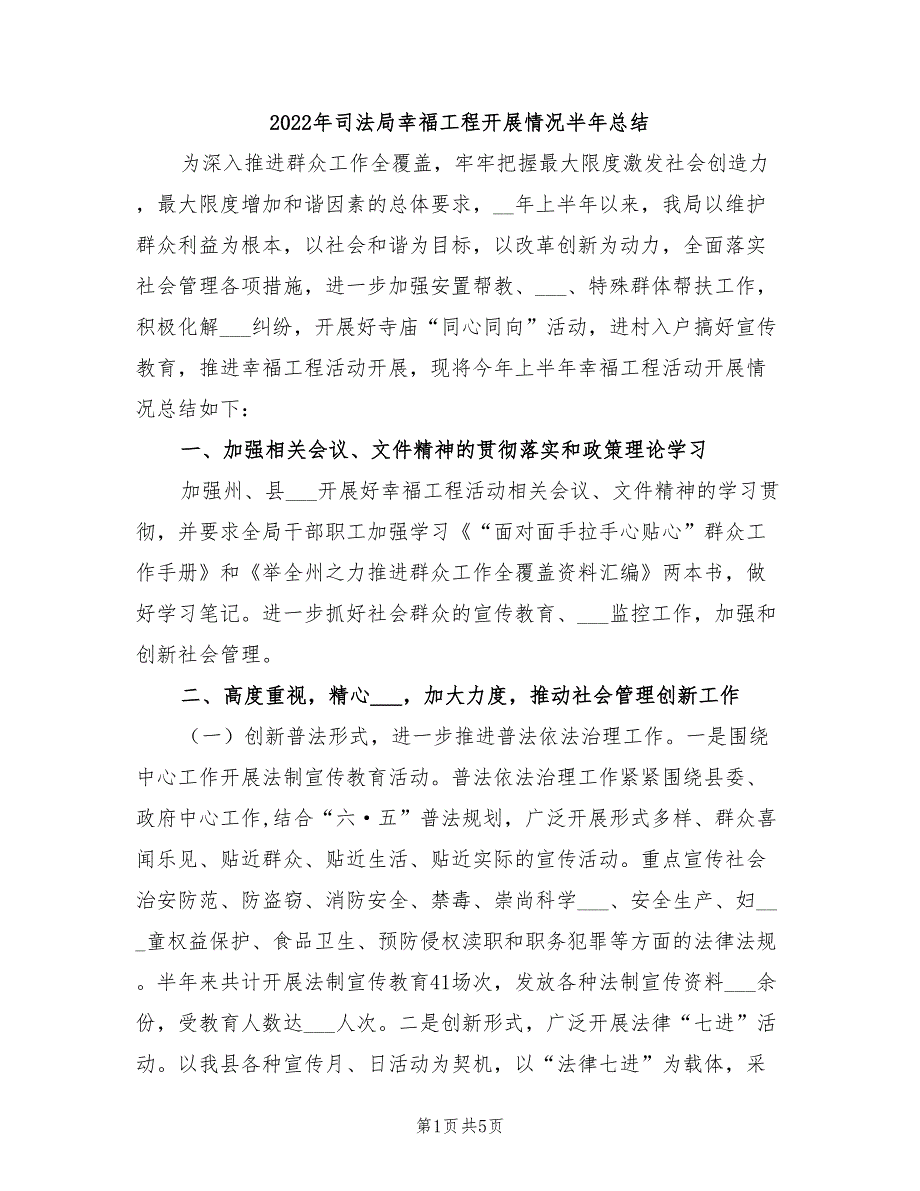 2022年司法局幸福工程开展情况半年总结
为深入推进群众工作全覆盖，牢牢把握最大限度激发社会创造力
，最大限度增加和谐因素的总体要求，__年上半年以来，我局以维护
群众利益为根本，以社会和谐为目标，以改革创新为动力，全面落实
社会管理各项措施，进一步加强安置帮教、___、特殊群体帮扶工作，
积极化解___纠纷，开展好寺庙“同心同向”活动，进村入户搞好宣传
教育，推进幸福工程活动开展，现将今年上半年幸福工程活动开展情
况总结如下：
一、加强相关会议、文件精神的贯彻落实和政策理论学习
加强州、县___开展好幸福工程活动相关会议、文件精神的学习贯
彻，并要求全局干部职工加强学习《“面对面手拉手心贴心”群众工
作手册》和《举全州之力推进群众工作全覆盖资料汇编》两本书，做
好学习笔记。进一步抓好社会群众的宣传教育、___监控工作，加强和
创新社会管理。
二、高度重视，精心___，加大力度，推动社会管理创新工作
（一）创新普法形式，进一步推进普法依法治理工作。一是围绕
中心工作开展法制宣传教育活动。普法依法治理工作紧紧围绕县委、
政府中心工作,结合“六·五”普法规划，广泛开展形式多样、群众喜
闻乐见、贴近群众、贴近生活、贴近实际的宣传活动。重点宣传社会
治安防范、防盗窃、消防安全、禁毒、崇尚科学___、安全生产、妇__
_童权益保护、食品卫生、预防侵权渎职和职务犯罪等方面的法律法规
。半年来共计开展法制宣传教育41场次，发放各种法制宣传资料___余
份，受教育人数达___人次。二是创新形式，广泛开展法律“七进”活
动。以我县各种宣传月、日活动为契机，以“法律七进”为载体，采
第1页共5页